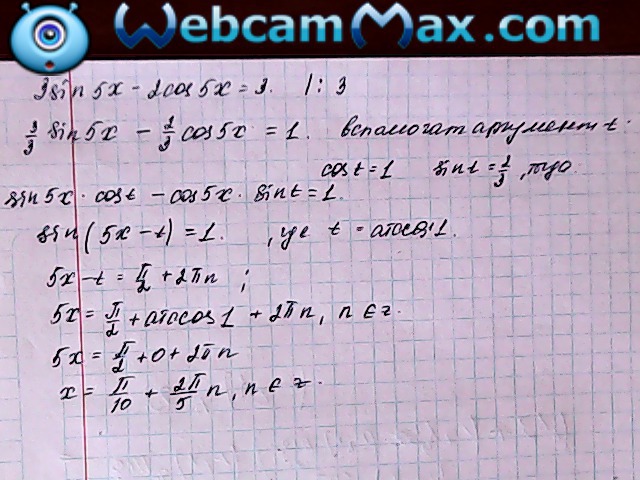 WebcamMax.com
3sin5x - 2cos5x = 3. |: 3
3/3 sin5x - 2/3 cos5x = 1. вспомогат аргумент t.
cost = 1 sint = 2/3, тогда
sin5x · cost - cos5x · sint = 1.
sin(5x - t) = 1. , где t = arccos1.
5x - t = π/2 + 2πn ;
5x = π/2 + arccos1 + 2πn, n ∈ z.
5x = π/2 + 0 + 2πn
x = π/10 + 2π/5 n, n ∈ z.